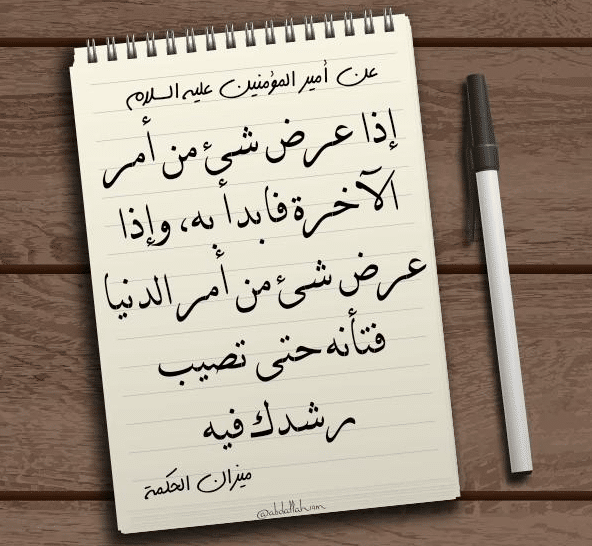 عن أمير المؤمنين عليه السلام
إذا عرض شيء من أمر
الآخرة فابدأ به، وإذا
عرض شيء من أمر الدنيا
فتأنه حتى تصيب
رشدك فيه
ميزان الحكمة